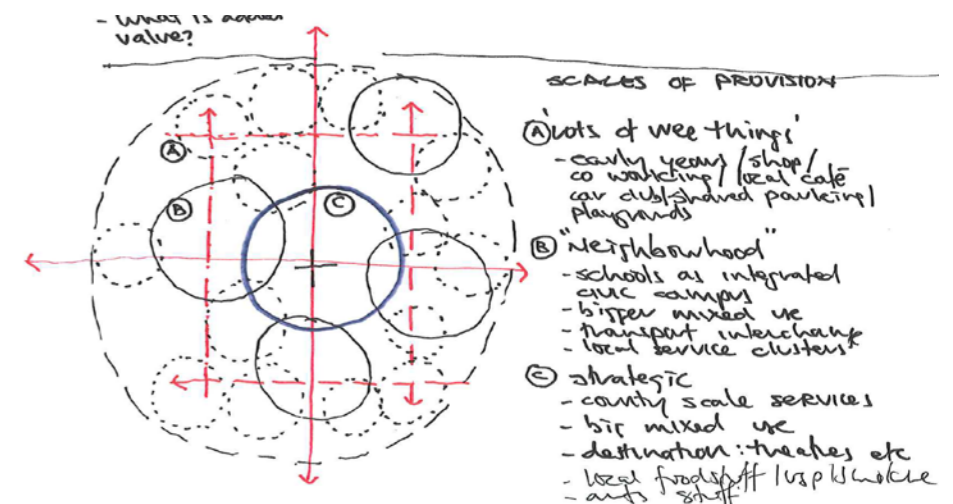 - What is
value?
SCALES OF PROVISION
Ⓐ 'Lots of wee things'
- early years / shop /
co working / local café
car club/shared parking /
playgrounds
Ⓑ "Neighbourhood"
- schools as integrated
civic campus
- bigger mixed use
- transport interchange
- local service clusters
Ⓒ strategic
- county scale services
- big mixed use
- destination: theatres etc
- local foodstuff /
- arts stuff
A
B
C